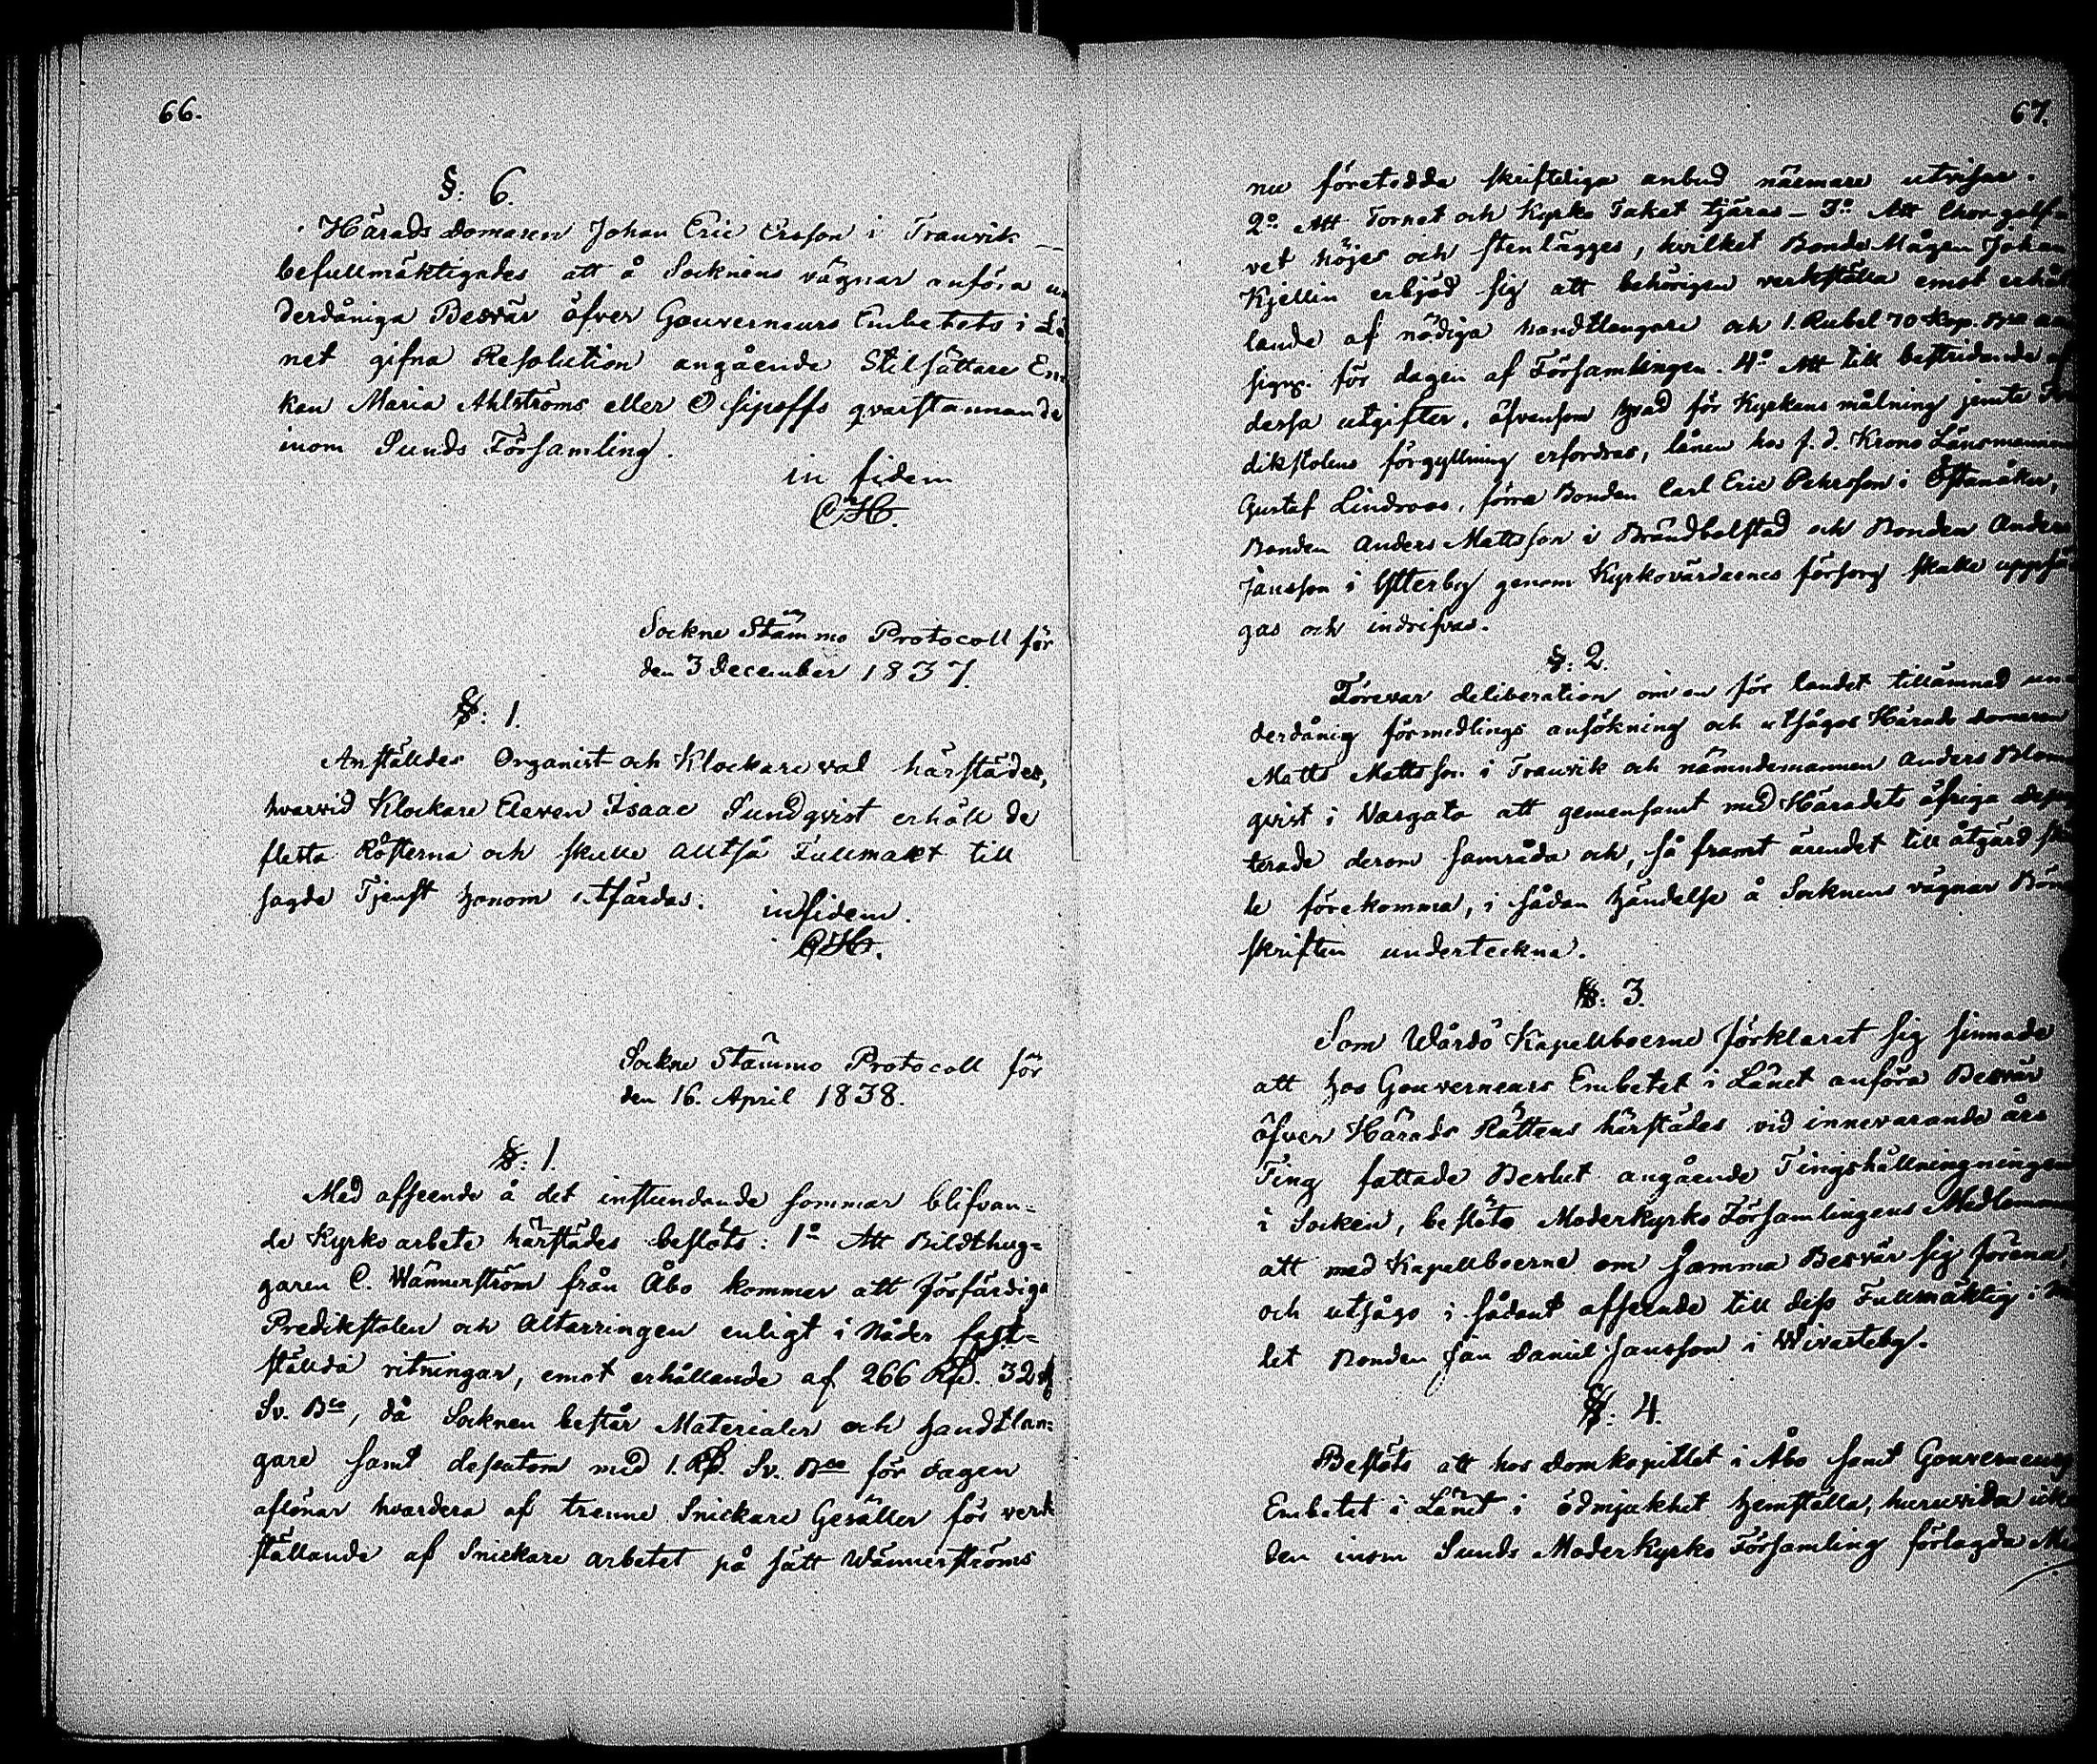 66.
§: 6.
Härads Domaren Johan Eric Ersson i Tranvik
befullmäktigades att å Socknens vägnar anföra un
derdåniga Besvär öfver Gouverneurs Embetets i Lä
net gifna Resolution angående Stilsättare En-
kan Maria Ahlströms eller Osipoffs qvarstannande
inom Sunds Församling.
in fidem
CH.
Sockne Stämmo Protocoll för
den 3 December 1837.
§: 1.
Anstäldes Organist och Klockare val härstädes,
hvarvid Klockare Eleven Isaac Sundqvist erhöll de
flesta Rösterna och skulle alltså Fullmakt till
sagde Tjenst honom utfärdas.
in fidem.
CH.
Sockne Stämmo Protocoll för
den 16. April 1838.
§: 1.
Med afseende å det instundande sommar blifvan=
de Kyrko arbete härstädes beslöts: 1º Att Bildthug=
garen C. Wännerström från Åbo kommer att förfärdiga
Predikstolen och Altarringen enligt i Nåder fast=
ställda ritningar, emot erhållande af 266 Rd. 32 s
Sv. Bco, då Socknen består Materialer och handtlan=
gare samt dessutom med 1. Rd. Sv. Bco för dagen
aflönar hvardera af trenne Snickare Gesäller för verk
ställande af Snickare arbetet på sätt Wännerströms
67.
nu företedde skriftliga anbud närmare utvisar.
2º Att Tornet och Kyrko Taket tjäras – 3º Att Chor golf
vet höjes och stenlägges, hvilket Bonde Mågen Johan
Kjellin erbjöd sig att behörigen verkställa emot erhål
lande af nödiga handtlangare och 1. Rubel 70 Kop. Bco
för dagen af Församlingen. 4º Att till bestridande af
dessa utgifter, äfvensom hvad för Kyrkans målning jemte
dikstolens förgyllning erfordras, lånen hos f. d. Krono Länsmannen
Gustaf Lindroos, förra Bonden Carl Eric Pehrsson i Östanåker,
Bonden Anders Mattsson i Brändbolstad och Bonden Anders
Jansson i Ytterby genom Kyrkovärdarnes försorg skulle uppsä
gas och indrifvas.
§: 2.
Förevar deliberation om en för landet tillämnad un
derdånig förmedlings ansökning och utsågos Härads Domaren
Matts Mattsson i Tranvik och nämndemannen Anders Blom
qvist i Vargata att gemensamt med Häradets öfriga depu
terade derom samråda och, så framt ärendet till åtgärd skul
le förekomma, i sådan händelse å Socknens vägnar Böne
skriften underteckna.
§: 3.
Som Wårdö Kapellboerne förklarat sig sinnade
att hos Gouverneurs Embetet i Länet anföra Besvär
öfver Härads Rättens härstädes vid innevarande års
Ting fattade Beslut angående Tingshållningningen
i Socken, beslöto Moderkyrko Församlingens Medlemmar
att med Kapellboerne om samma Besvär sig förena,
och utsågo i sådant afseende till dess Fullmäktig i må
let Bonden Jan Daniel Jansson i Wivasteby.
§: 4.
Beslöts att hos Domkapitlet i Åbo samt Gouverneurs
Embetet i Länet i ödmjukhet hemställa, huruvida
den inom Sunds Moderkyrko Församling förlagda